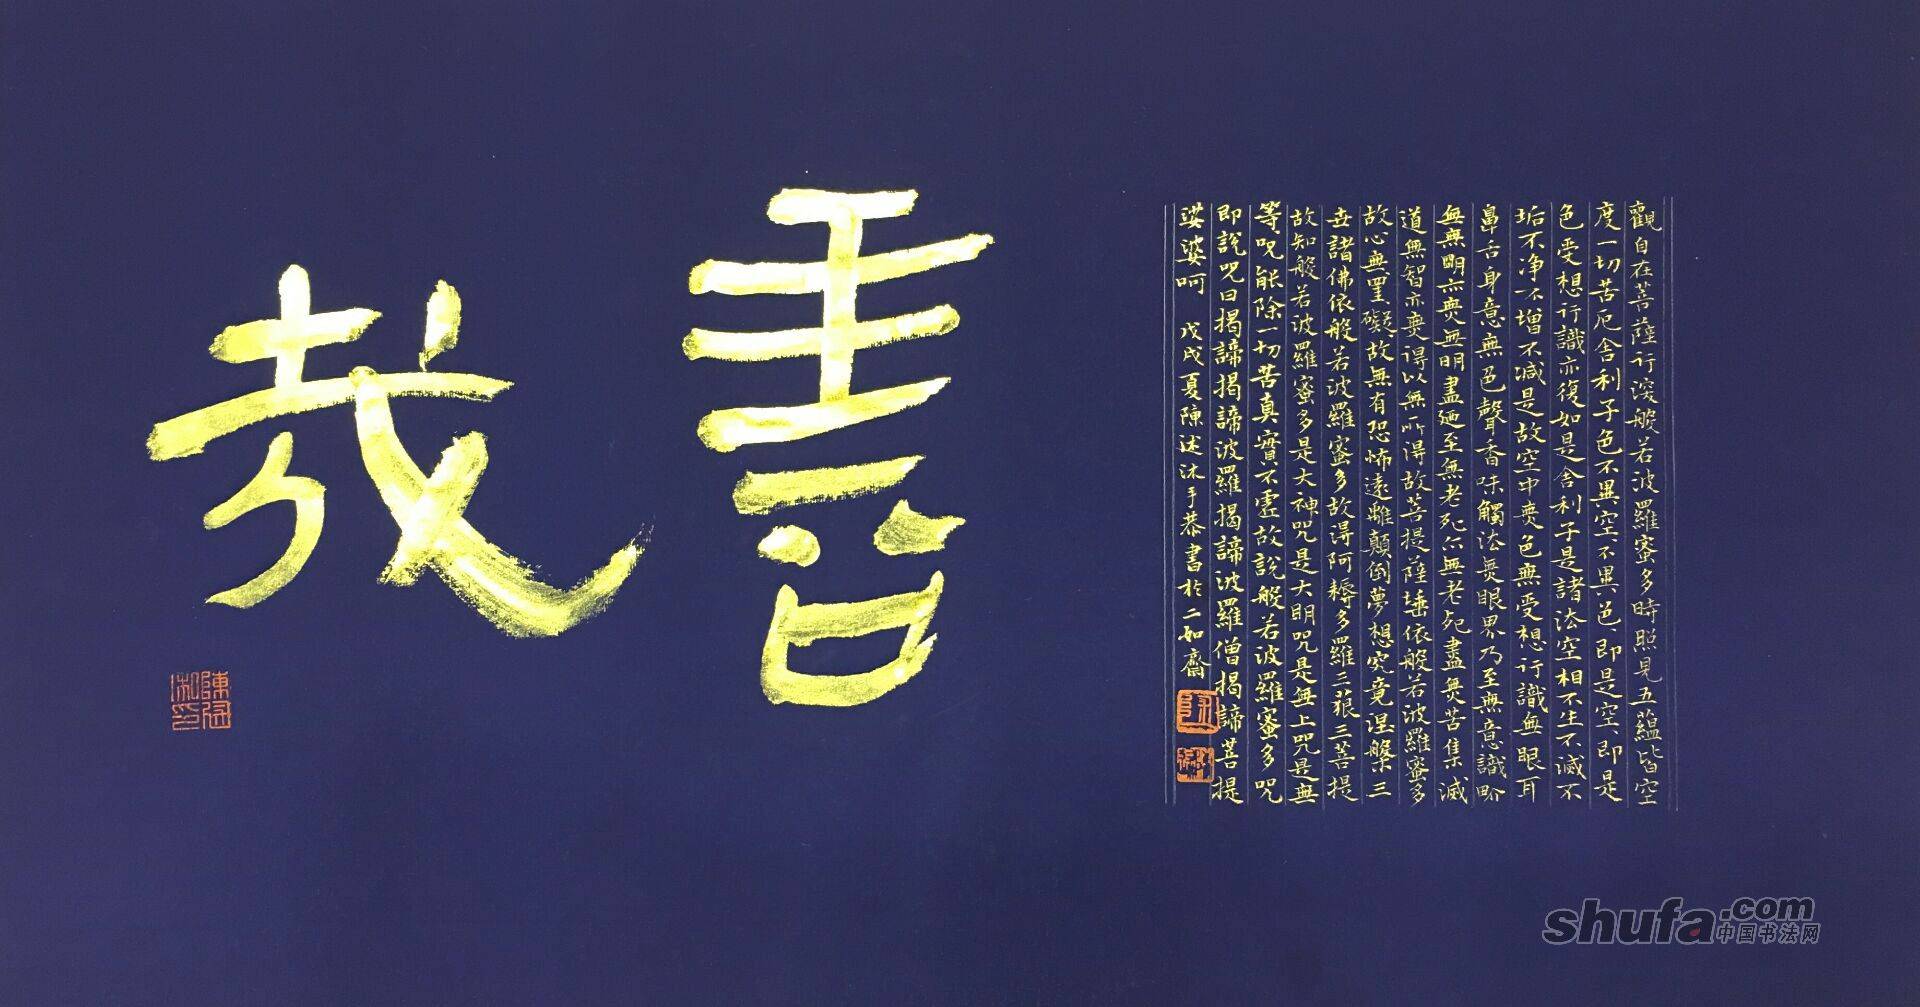 觀自在菩薩行深般若波羅蜜多時照見五蘊皆空
度一切苦厄舍利子色不異空不異色即是空即是
色受想行識亦復如是舍利子是諸法空相不生不滅不
垢不净不增不減是故空中無色無受想行識無眼耳
鼻舌身意無色聲香味觸法無眼界乃至無意識界
無無明亦無無明盡廼至無老死亦無老死盡無苦集滅
道無智亦無得以無所得故菩提薩埵依般若波羅蜜多
故心無罣礙故無有恐怖遠離顛倒夢想究竟涅槃三
世諸佛依般若波羅蜜多故得阿耨多羅三藐三菩提
故知般若波羅蜜多是大神咒是大明咒是無上咒是無
等咒能除一切苦真實不虛故說般若波羅蜜多咒
即說咒曰揭諦揭諦波羅揭諦波羅僧揭諦菩提
娑婆呵 戊戌夏陳述沐手恭書於二如齋
善哉
shufa.com
中国书法网